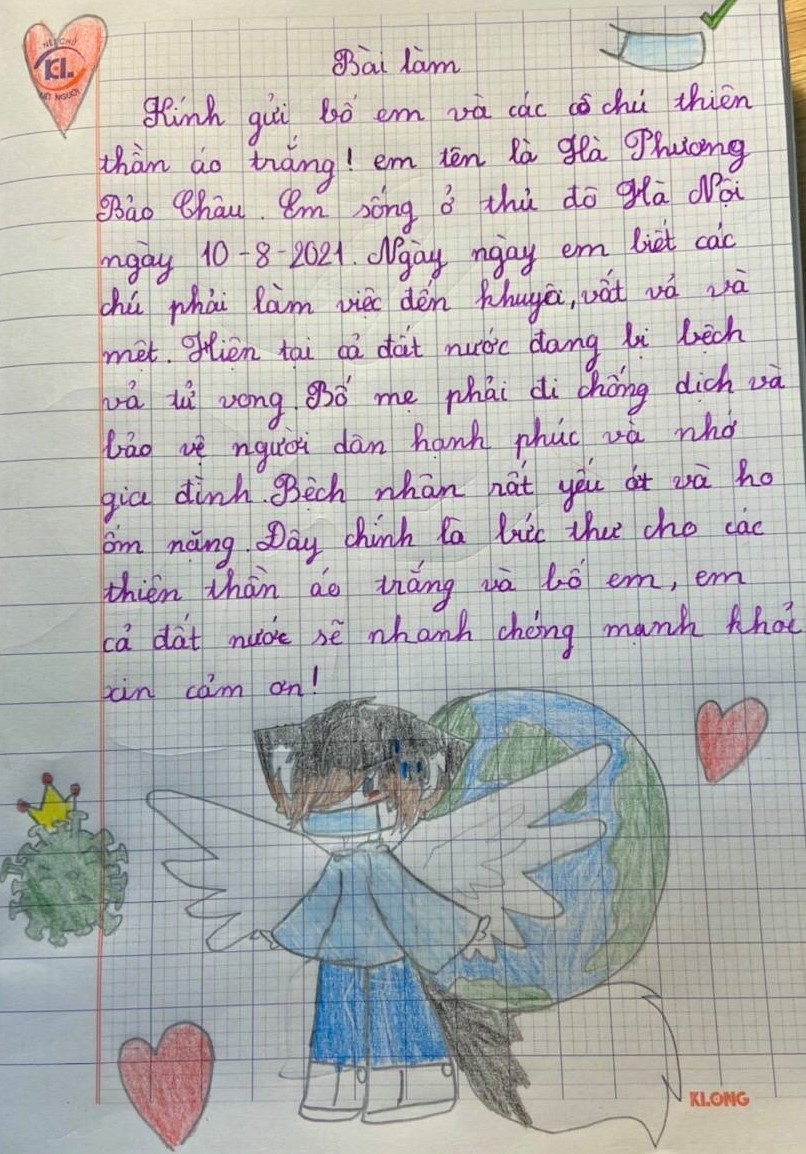 NÉT CHỮ
KL
NẾT NGƯỜI
Bài làm
Kính gửi bố em và các cô chú thiên
thần áo trắng! em tên là Hà Phương
Bảo Châu. Em sống ở thủ đô Hà Nội
ngày 10-8-2021. Ngày ngày em biết các
chú phải làm việc đến khuya, vất vả và
mệt. Hiện tại cả đất nước đang bị bệch
và tử vong. Bố mẹ phải đi chống dịch và
bảo vệ người dân hạnh phúc và nhớ
gia đình. Bệch nhân rất yếu ớt và ho
ốm nặng. Đây chính là bức thư cho các
thiên thần áo trắng và bố em, em
cả đất nước sẽ nhanh chóng mạnh khỏe
xin cảm ơn!
KLONG